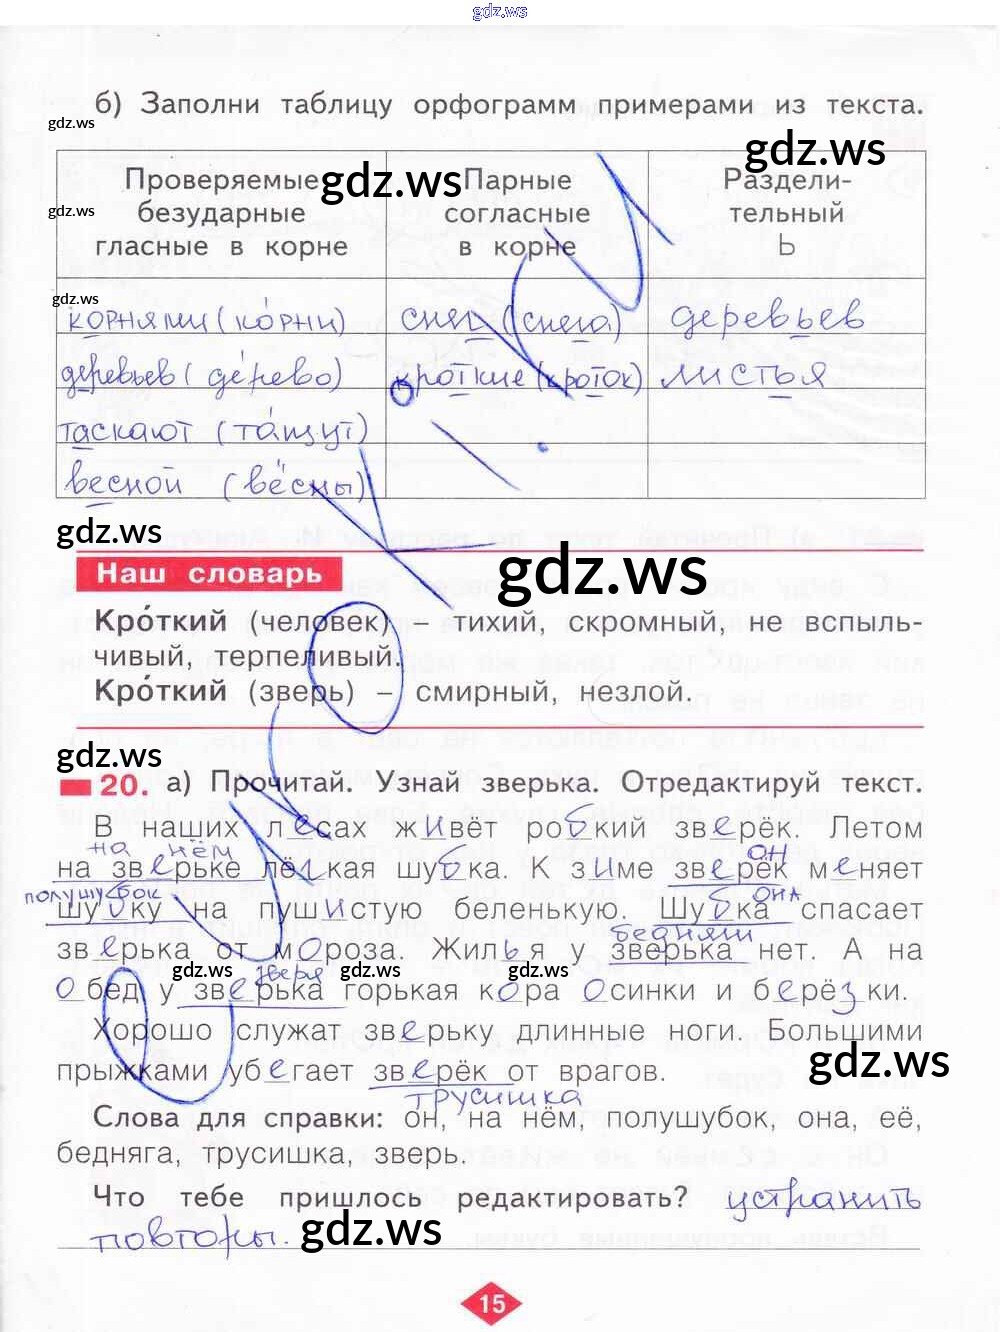 gdz.ws
б) Заполни таблицу орфограмм примерами из текста.
gdz.ws
gdz.ws
Проверяемые безударные гласные в корне
gdz.ws
Парные согласные в корне
Раздели-
тельный
Ь
gdz.ws
gdz.ws
корнями (ко́рни) снег (снега) деревьев
деревьев (де́рево) кроткие (кроток) листья
таскают (та́щут)
весной (вёсны)
gdz.ws
gdz.ws
Наш словарь
Кро́ткий (человек) – тихий, скромный, не вспыль-
чивый, терпеливый.
Кро́ткий (зверь) – смирный, незлой.
gdz.ws
20. а) Прочитай. Узнай зверька. Отредактируй текст.
В наших лесах живёт робкий зверёк. Летом
на нём он
на зверьке лёгкая шубка. К зиме зверёк меняет
полушубок она
шубку на пушистую беленькую. Шубка спасает
бедняги
зверька от мороза. Жилья у зверька нет. А на
gdz.ws зверя gdz.ws gdz.ws
обед у зверька горькая кора осинки и берёзки.
Хорошо служат зверьку длинные ноги. Большими
gdz.ws
прыжками убегает зверёк от врагов.
трусишка
Слова для справки: он, на нём, полушубок, она, её,
бедняга, трусишка, зверь.
Что тебе пришлось редактировать? устранить
повторы.
gdz.ws
15